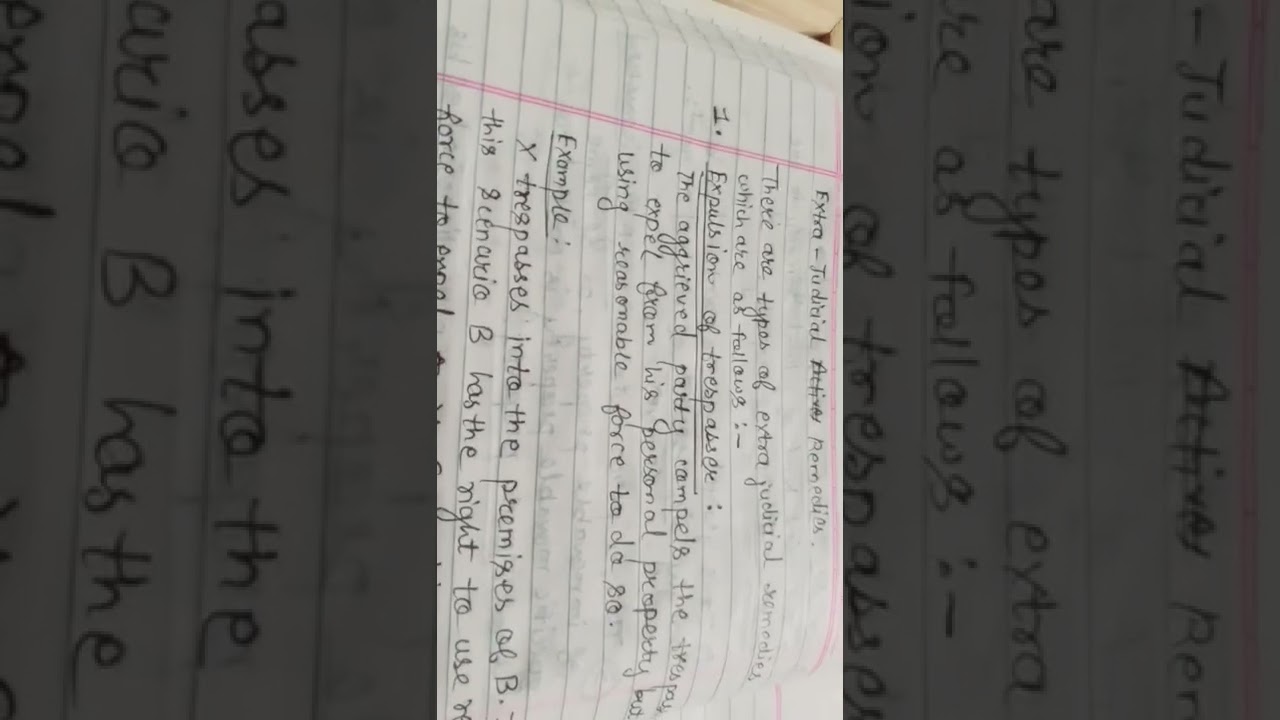 Extra - Judicial Remedies.
There are types of extra judicial remedies
which are as follows :-
1. Expulsion of trespasser :
The aggrieved party compels the
to expel from his personal property
using reasonable force to do so.
Example :
X trespasses into the premises of B.
this scenario B has the right to use
force to